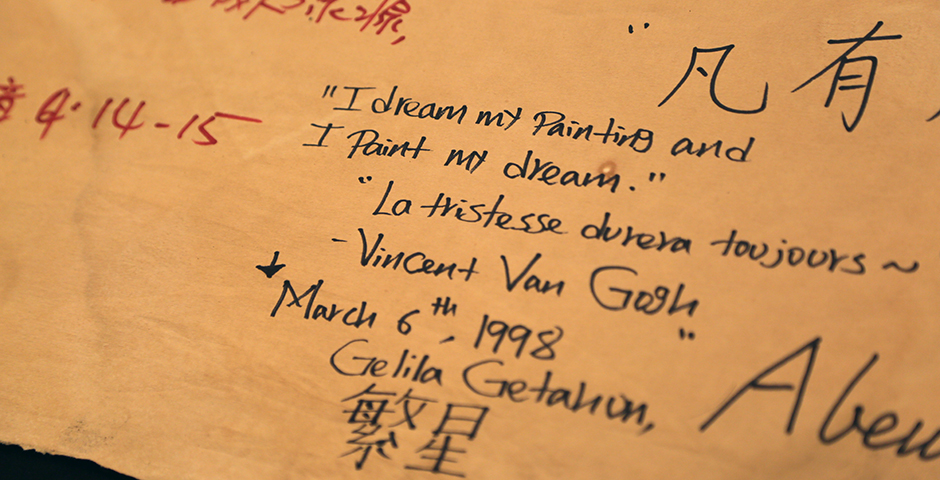 "凡有
章 4:14-15
"I dream my Painting and
I Paint my dream."
"La tristesse durera toujours ~
- Vincent Van Gogh "
↓
March 6th, 1998
Gelila Getahun,
繁星